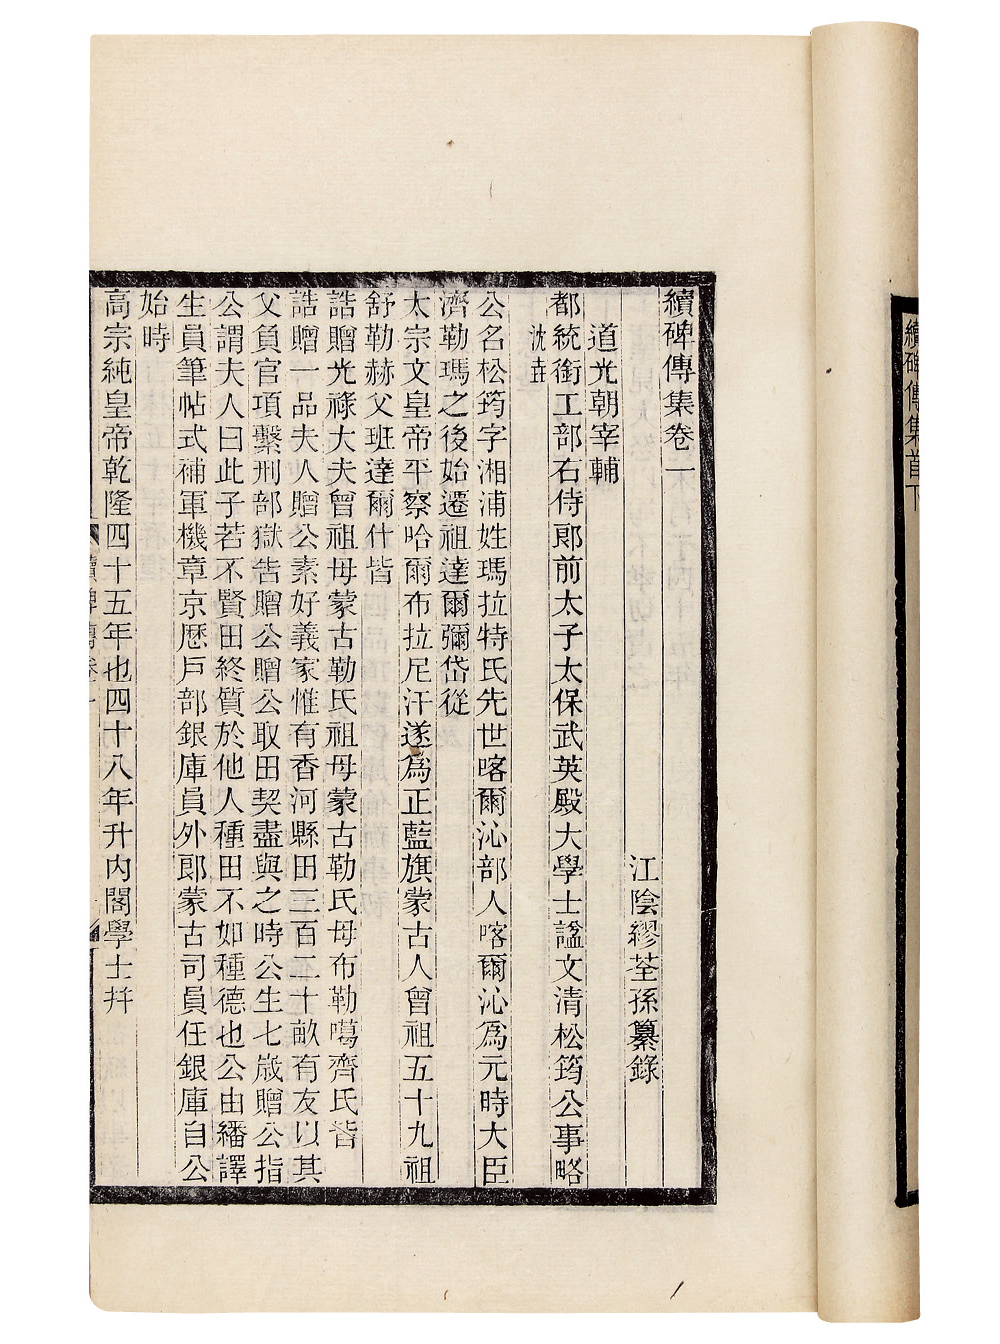 續碑傳集卷一
江陰繆荃孫纂錄
道光朝宰輔
都統銜工部右侍郎前太子太保武英殿大學士諡文清松筠公事略
沈垚
公名松筠字湘浦姓瑪拉特氏先世喀爾沁部人喀爾沁爲元時大臣
濟勒瑪之後始遷祖達爾彌岱從
太宗文皇帝平察哈爾布拉尼汗遂爲正藍旗蒙古人曾祖五十九祖
舒勒赫父班達爾什皆
誥贈光祿大夫曾祖母蒙古勒氏祖母蒙古勒氏母布勒噶齊氏皆
誥贈一品夫人贈公素好義家惟有香河縣田三百二十畝有友以其
父負官項繫刑部獄告贈公贈公取田契盡與之時公生七歲贈公指
公謂夫人曰此子若不賢田終質於他人種田不如種德也公由繙譯
生員筆帖式補軍機章京歷戶部銀庫員外郎蒙古司員任銀庫自公
始時
高宗純皇帝乾隆四十五年也四十八年升內閣學士并
續碑傳卷一
續碑傳集首下